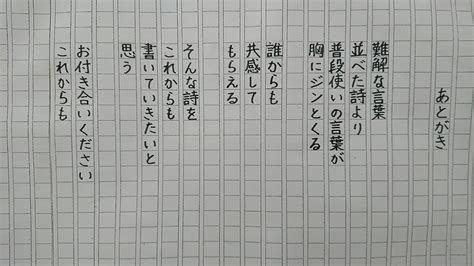 あとがき
難解な言葉
並べた詩より
普段使いの言葉が
胸にジンとくる
誰からも
共感して
もらえる
そんな詩を
これからも
書いていきたいと
思う
お付き合いください
これからも